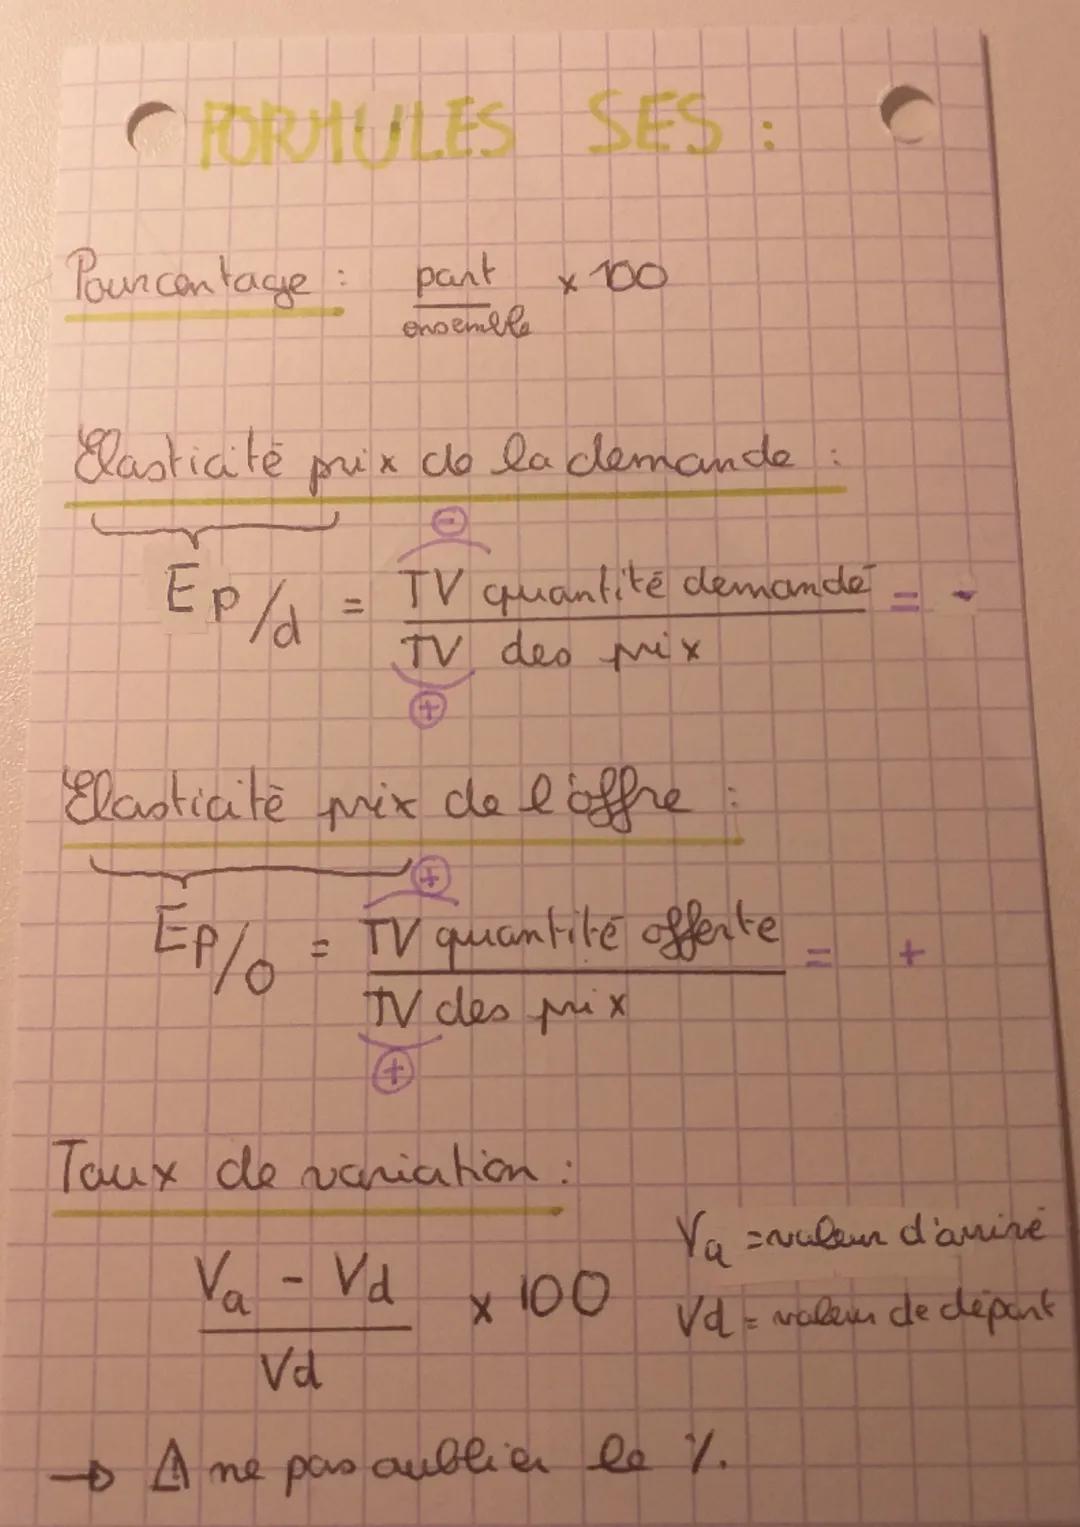 FORMULES SES :
Pourcentage : part x 100
ensemble
Elasticité prix de la demande :
⊖
Ep/d = TV quantité demandé = -
TV des prix
⊕
Elasticité prix de l'offre :
⊕
Ep/o = TV quantité offerte = +
TV des prix
⊕
Taux de variation :
Va - Vd x 100
Vd
Va = valeur d'arrivé
Vd = valeur de départ
→ ⚠ ne pas oublier le %.